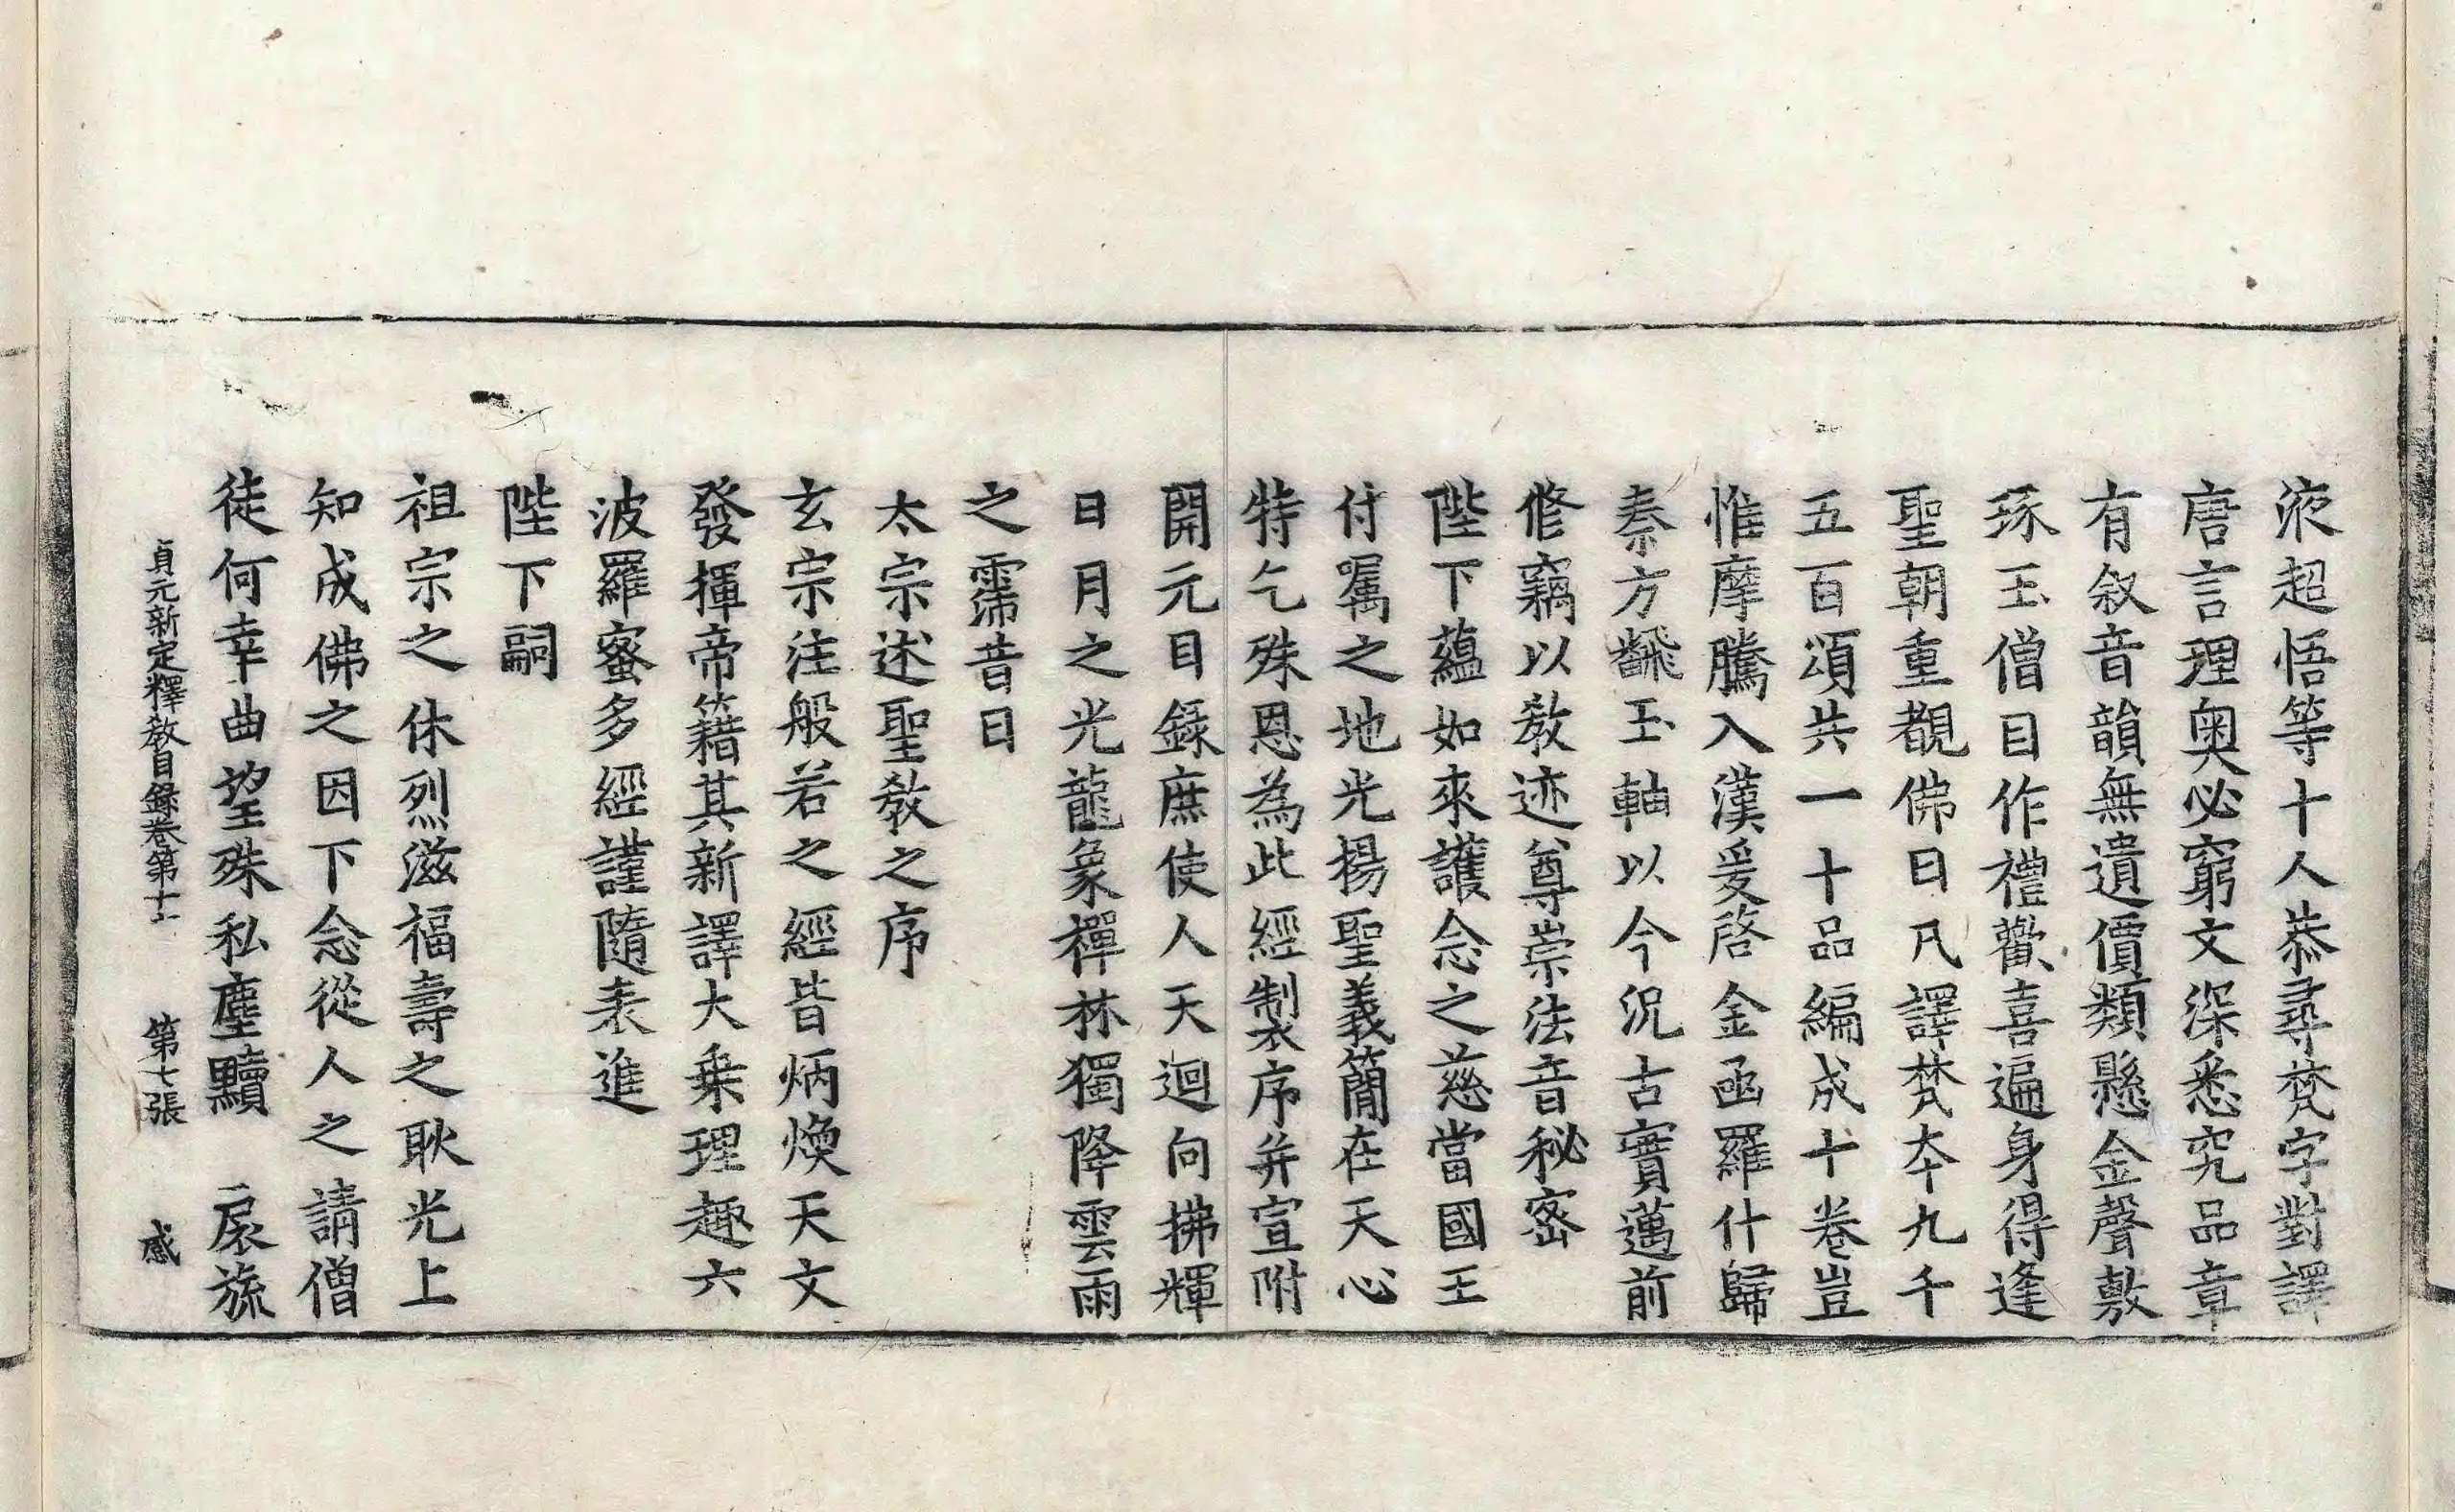 液超悟等十人恭尋梵字對譯
唐言理奧必窮文深悉究品章
有叙音韻無遺價類懸金聲敷
琢玉僧目作禮歡喜遍身得逢
聖朝重覩佛日凡譯梵本九千
五百頌共一十品編成十卷豈
惟摩騰入漢爰啓金函羅什歸
秦方飜玉軸以今況古實邁前
修竊以教迹尊崇法音秘密
陛下蘊如來護念之慈當國王
付囑之地光揚聖義簡在天心
特乞殊恩為此經製序并宣附
開元目錄庶使人天迴向拂輝
日月之光龍象禪林獨降雲雨
之霈昔日
太宗述聖教之序
玄宗注般若之經皆炳煥天文
發揮帝籍其新譯大乗理趣六
波羅蜜多經謹隨表進
陛下嗣
祖宗之休烈滋福壽之耿光上
知成佛之因下念從人之請僧
徒何幸曲望殊私塵黷 扆旒
貞元新定釋教目録卷第十七 第七張 感